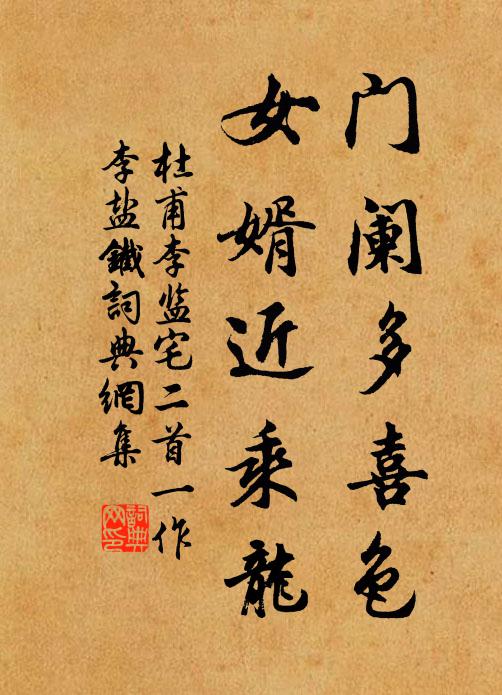 门阑多喜色
女婿近乘龙
杜甫李监宅二首一作
李盐鐵詞典網集
詞典
网印